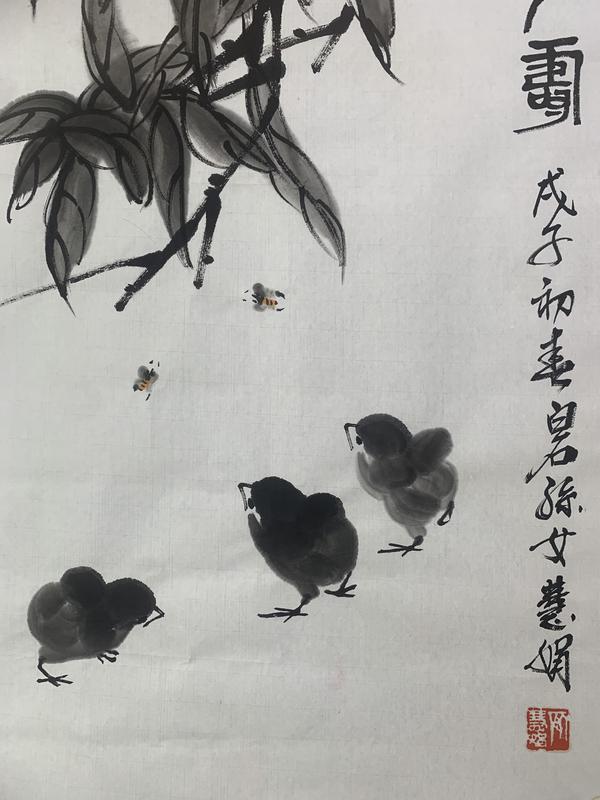 戊子初春白石孫女慧娟